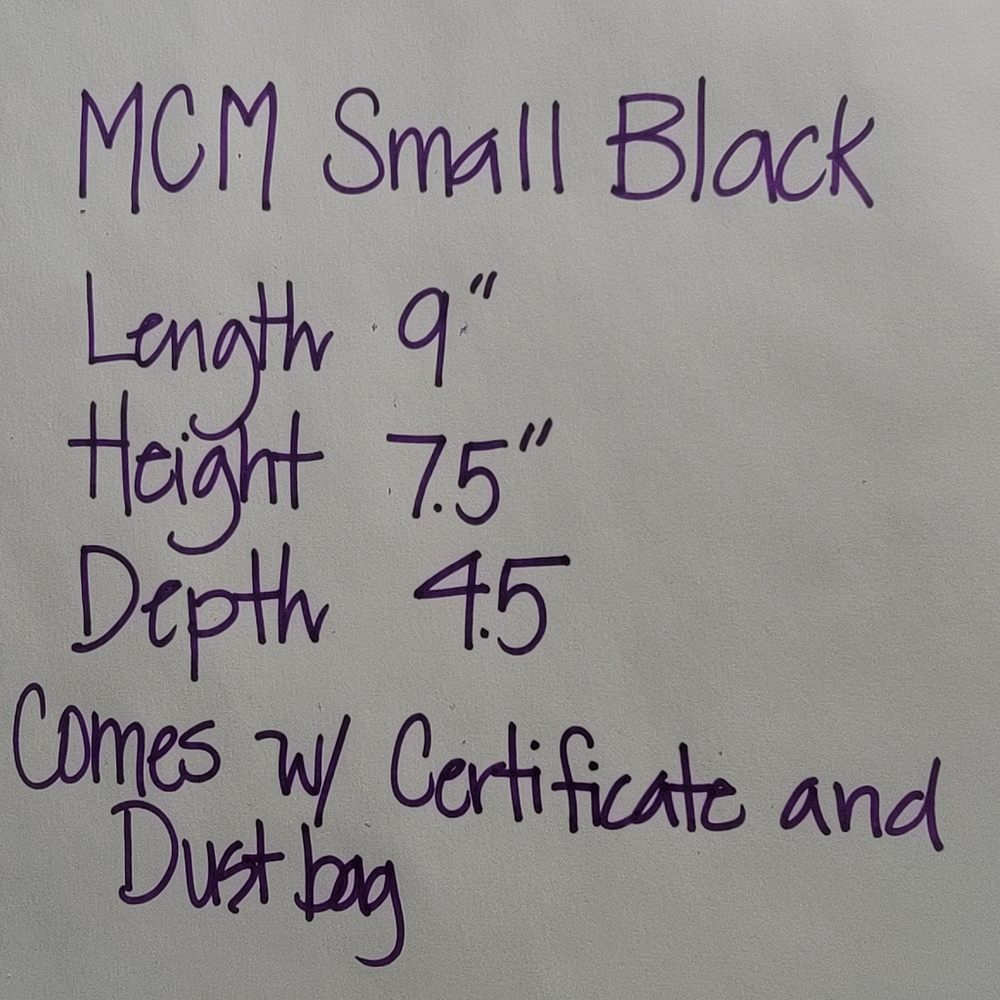 MCM Small Black
Length 9"
Height 7.5"
Depth 4.5
Comes w/ Certificate and
Dust bag